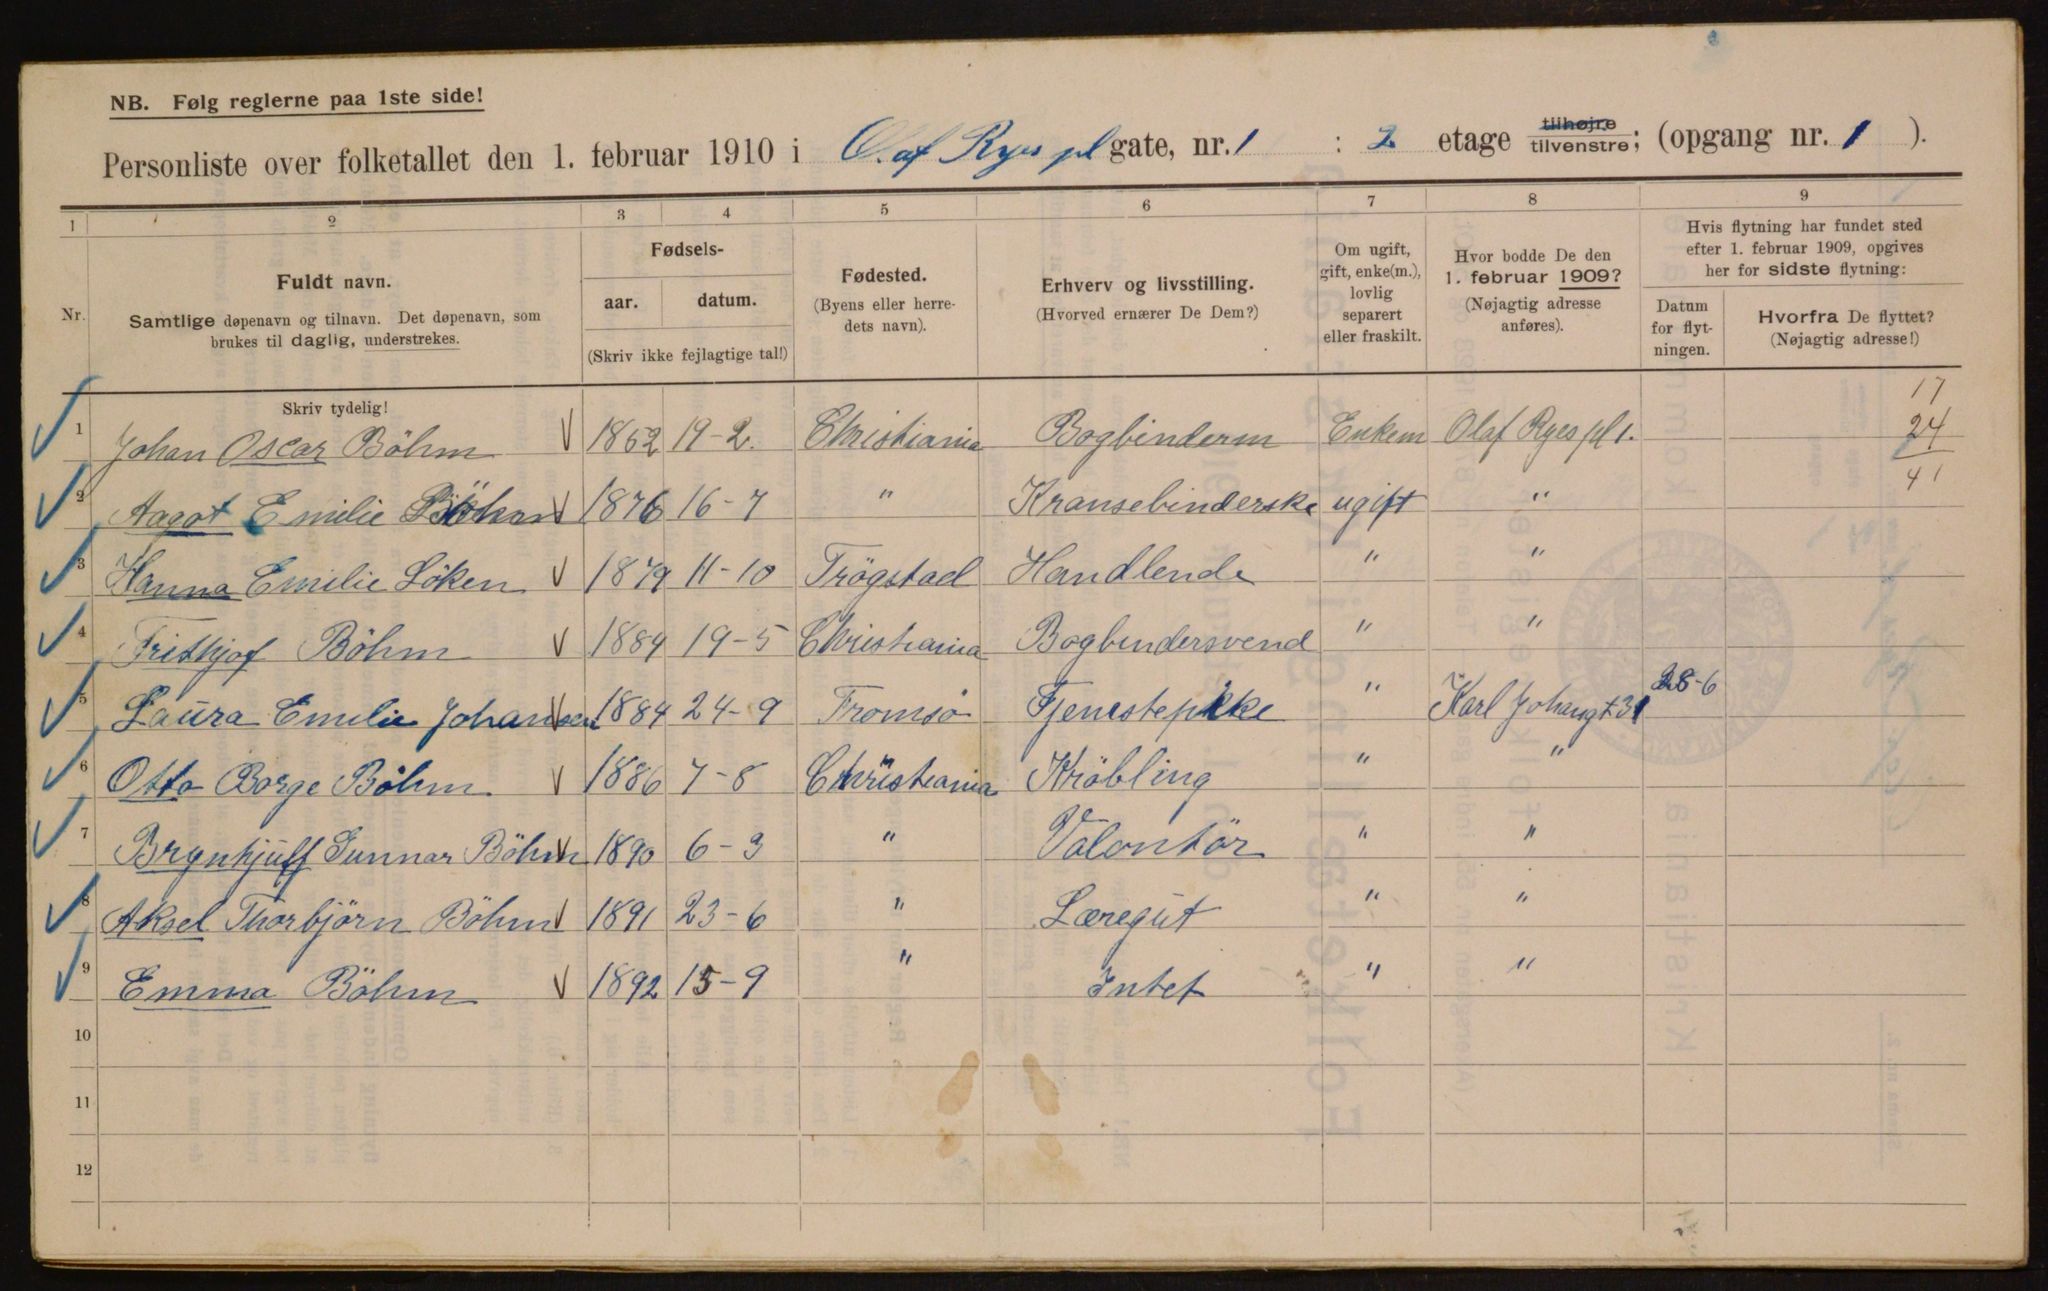 NB. Følg reglerne paa 1ste side!
Personliste over folketallet den 1. februar 1910 i Olaf Ryes pl gate, nr. 1 : 2 etage tilhøjre tilvenstre; (opgang nr. 1 ).
1 2 3 4 5 6 7 8 9
Nr.
Fuldt navn.
Samtlige døpenavn og tilnavn. Det døpenavn, som
brukes til daglig, understrekes.
Fødsels-
aar. datum.
(Skriv ikke fejlagtige tal!)
Fødested.
(Byens eller herre-
dets navn).
Erhverv og livsstilling.
(Hvorved ernærer De Dem?)
Om ugift,
gift, enke(m.),
lovlig
separert
eller fraskilt.
Hvor bodde De den
1. februar 1909?
(Nøjagtig adresse
anføres).
Hvis flytning har fundet sted
efter 1. februar 1909, opgives
her for sidste flytning:
Datum
for flyt-
ningen.
Hvorfra De flyttet?
(Nøjagtig adresse!)
Skriv tydelig!
17
24
41
1 Johan Oscar Böhm 1862 19-2. Christiania Bogbinderm Enkem Olaf Ryes pl 1.
2 Aagot Emilie Böhm 1876 16-7 " Kransebinderske ugift "
3 Hanna Emilie Löken 1879 11-10 Trögstad Handlende " "
4 Frithjof Böhm 1884 19-5 Christiania Bogbindersvend " "
5 Laura Emilie Johansen 1884 24-9 Tromsö Tjenestepike " Karl Johangt 31 28-6
6 Otto Borge Böhm 1886 7-8 Christiania Kröbling " "
7 Brynhjulf Gunnar Böhm 1890 6-3 " Volontör " "
8 Aksel Thorbjörn Böhm 1891 23-6 " Læregut " "
9 Emma Böhm 1892 15-9 " Intet " "
10
11
12